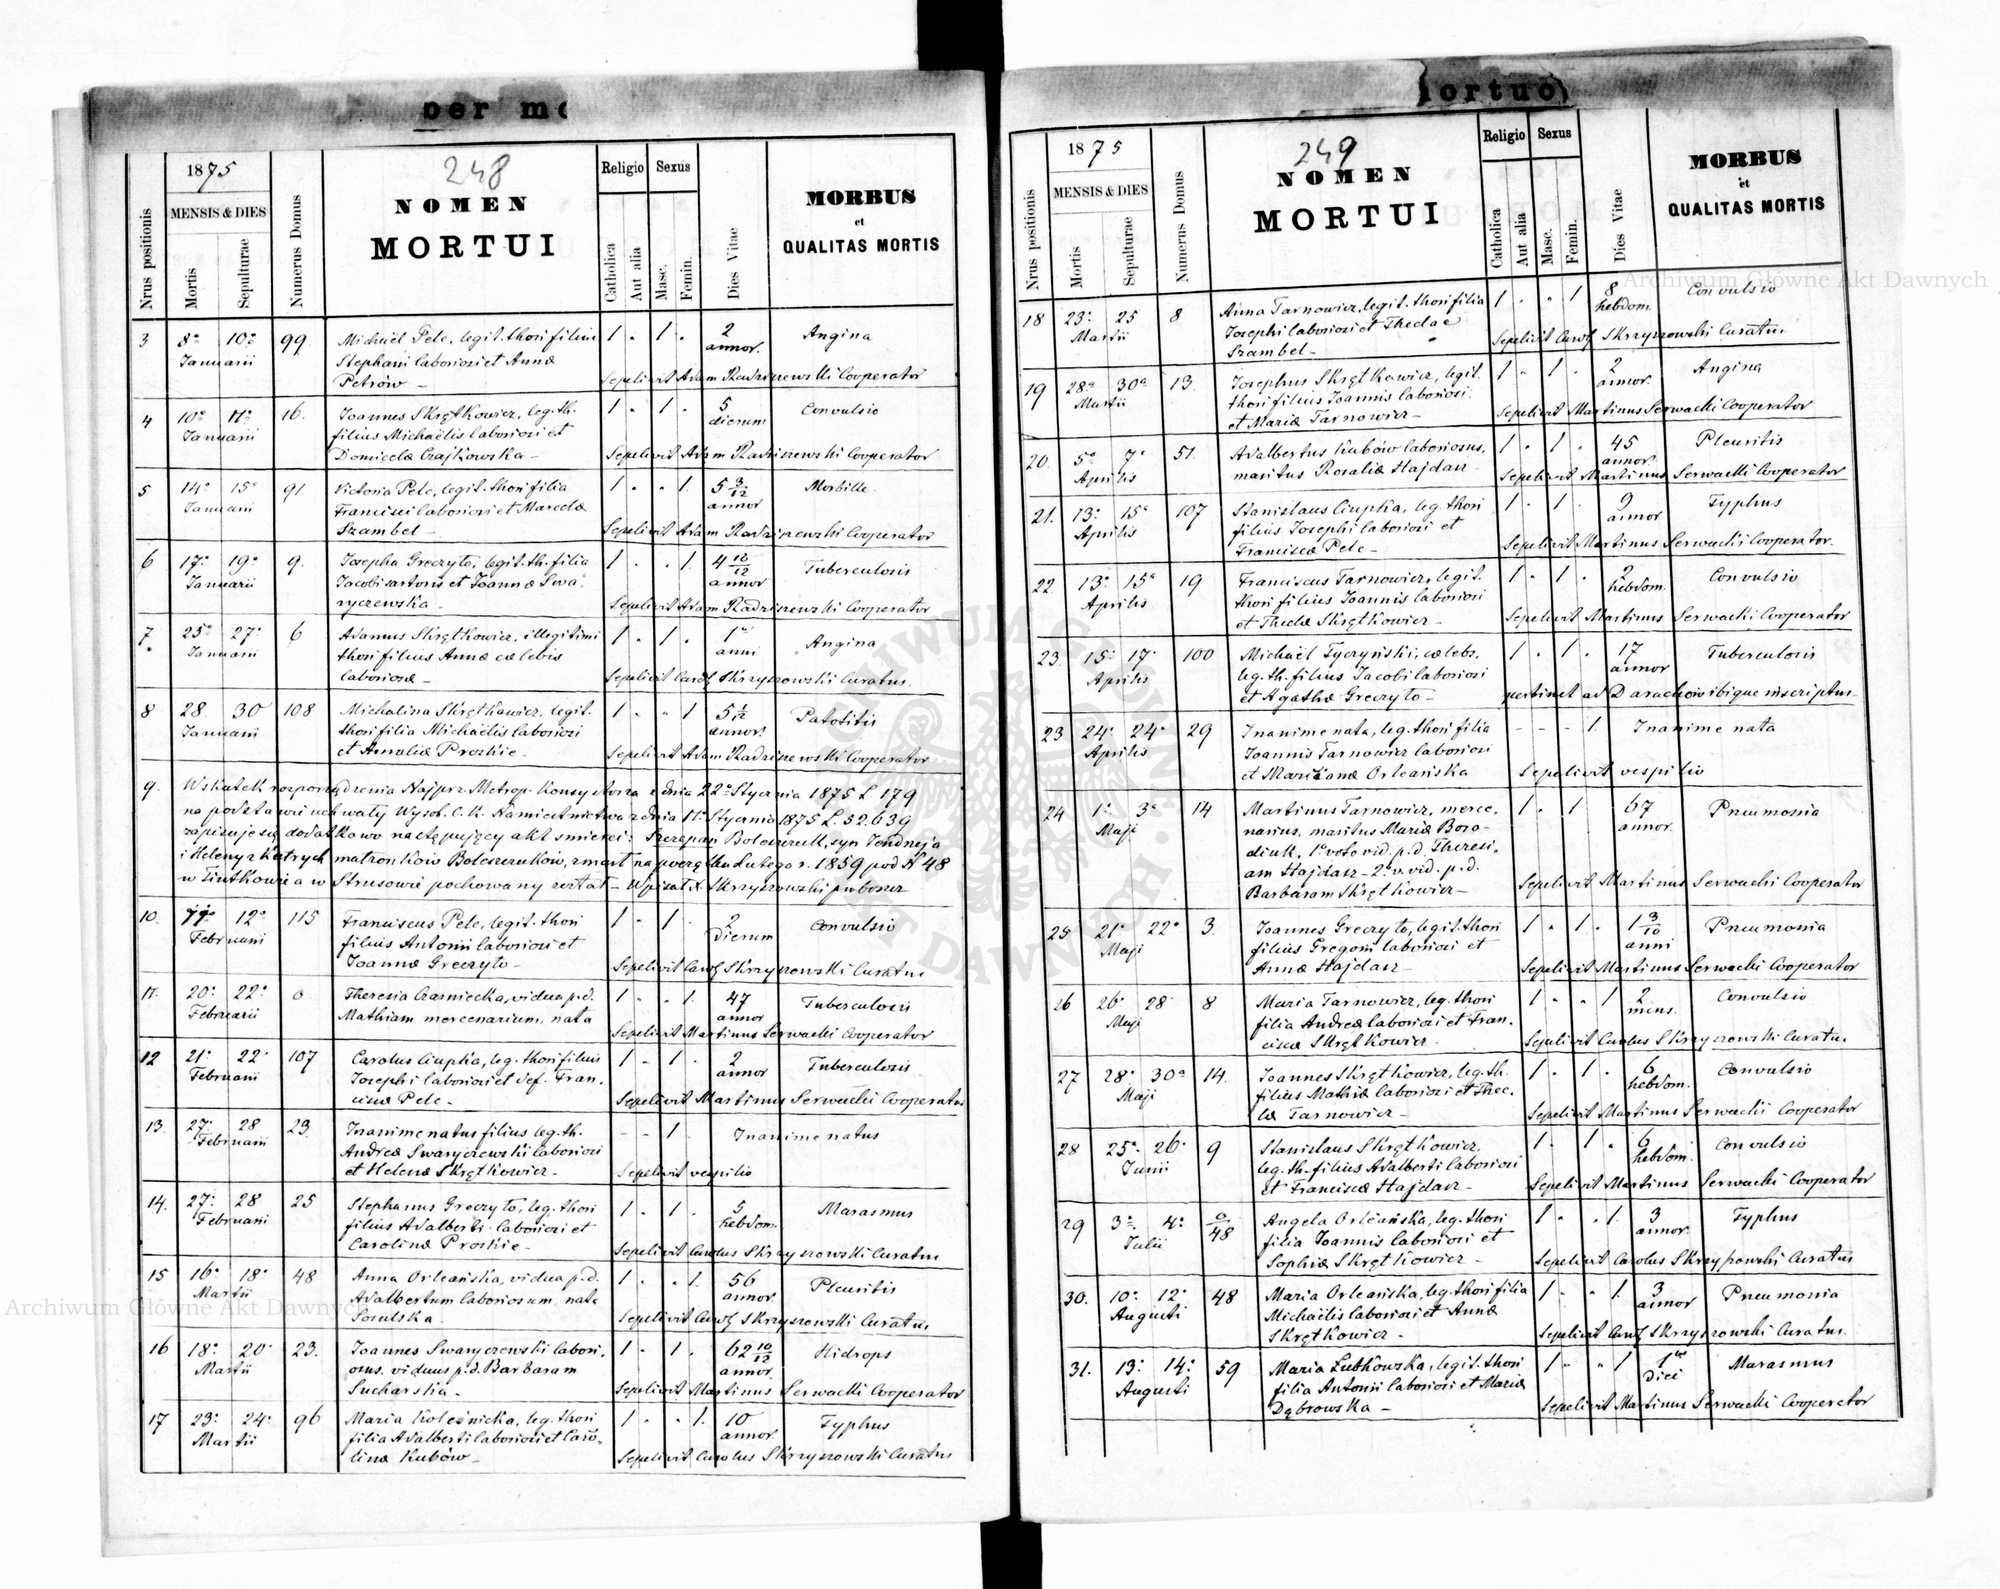 per mo
248
1875
MENSIS & DIES
Nrus positionis
Mortis
Sepulturae
Numerus Domus
NOMEN
MORTUI
Religio
Catholica
Aut alia
Sexus
Masc.
Femin.
Dies Vitae
MORBUS
et
QUALITAS MORTIS
3 8a 10a 99. Michaël Pelc, legit. thori filius 1 - 1 . 2 Angina
Januarii Stephani laboriosi et Annæ annor.
Petrów - Sepelivit Adam Radziszewski Cooperator
4 10a 11a 16. Joannes Skrętkowicz, leg. th. 1 - 1 . 5 Convulsio
Januarii filius Michaëlis laboriosi et dierum
Domicelæ Czajkowska - Sepelivit Adam Radziszewski Cooperator
5 14a 15a 91. Victoria Pelc, legit. thori filia 1 - - 1. 5 3/12 Morbille.
Januarii Francisci laboriosi et Marcelæ annor
Szambel - Sepelivit Adam Radziszewski Cooperator
6 17a 19a 9. Josepha Greczyło, legit. th. filia 1 - - 1. 4 Tuberculosis
Januarii Jacobi sartoris et Joannæ Swa- annor
ryczewska - Sepelivit Adam Radziszewski Cooperator
7 25a 27a 6 Adamus Skrętkowicz, illegitimi 1 - 1 . 1 Angina
Januarii thori filius Annæ cælebis anni
laboriosæ - Sepelivit Carol Skrzyszowski Curatus.
8 28 30 108 Michalina Skrętkowicz, legit. 1 - - 1 5 1/12 Patotitis
Januarii thori filia Michaëlis laboriosi annor.
et Amaliæ Proskie - Sepelivit Adam Radziszewski Cooperator
9. Wskutek rozporządzenia Najprz. Metrop. Konsystorza z dnia 22o Stycznia 1875 L 179
na podstawie uchwały Wysok. C. K. Namiestnictwa z dnia 11o Stycznia 1875 L. 52.639
zapisuje się dodatkowo następujący akt śmierci: Szczepan Boleszczuk, syn Jendrzeja
i Heleny z Kutrych małżonków Boleszczuków, zmarł na początku Lutego r. 1859 pod N 48
w Tiutkowie a w Strusowie pochowany został - Wpisał X. Skrzyszowski proboszcz
10. 12a 115 Franciscus Pelc, legit. thori 1 - 1 - 2 Convulsio
Februarii filius Antonii laboriosi et Dierum
Joannæ Greczyło - Sepelivit Carol Skrzyszowski Curatus
11. 20a 22a 0 Theresia Czarniecka, vidua p. d. 1 - - 1. 47 Tuberculosis
Februarii Mathiam mercenarium, nata annor
Sepelivit Martinus Serwacki Cooperator
12 21a 22 107 Carolus Ciupka, leg. thori filius 1 - 1 - 2 Tuberculosis
Februarii Josephi laboriosi et def. Fran- annor
ciscæ Pelc - Sepelivit Martinus Serwacki Cooperator
13. 27a 28 23. Inanime natus filius leg. th. - - 1 Inanime natus
Februarii Andreæ Swaryczewski laboriosi
et Helenæ Skrętkowicz - Sepelivit vespilio
14. 27a 28 25 Stephanus Greczyło, leg. thori 1 - 1 5 Marasmus
Februarii filius Adalberti laboriosi et hebdom.
Carolinæ Proskie - Sepelivit Carolus Skrzyszowski Curatus
15 16a 18a 48 Anna Orleańska, vidua p. d. 1 - - 1. 56 Pleuritis
Martii Adalbertum laboriosum nata annor.
Sosulska. Sepelivit Carol Skrzyszowski Curatus
16 18a 20 23. Joannes Swaryczewski labori- 1 - 1 62 10/12 Hidrops
Martii osus, viduus p. d. Barbaram annor.
Sucharska - Sepelivit Martinus Serwacki Cooperator
17 23a 24a 96 Maria Koleśnicka, leg. thori 1 - - 1. 10 Typhus
Martii filia Adalberti laboriosi et Caro- annor.
linæ Kubów - Sepelivit Carolus Skrzyszowski Curatus
ortuo
249
1875
MENSIS & DIES
Nrus positionis
Mortis
Sepulturae
Numerus Domus
NOMEN
MORTUI
Religio
Catholica
Aut alia
Sexus
Masc.
Femin.
Dies Vitae
MORBUS
et
QUALITAS MORTIS
18 23a 25 8 Anna Tarnowicz, legit. thori filia 1 - - 1 8 Convulsio
Martii Josephi laboriosi et Theclæ hebdom.
Szambel - Sepelivit Carol Skrzyszowski Curatus
19 28a 30a 13. Josephus Skrętkowicz, legit. 1 - 1 - 2 Angina
Martii thori filius Joannis laboriosi annor.
et Mariæ Tarnowicz - Sepelivit Martinus Serwacki Cooperator
20. 5a 7a 51. Adalbertus Kubów laboriosus, 1 - 1 . 45 Pleuritis
Aprilis maritus Rosaliæ Hajdasz - annor.
Sepelivit Martinus Serwacki Cooperator
21. 13a 15a 107 Stanislaus Ciupka, leg. thori 1 - 1 . 9 Typhus
Aprilis filius Josephi laboriosi et annor
Franciscæ Pelc - Sepelivit Martinus Serwacki Cooperator
22 13a 15a 19 Franciscus Tarnowicz, legit. 1 - 1 - 2 Convulsio
Aprilis thori filius Joannis laboriosi hebdom.
et Theclæ Skrętkowicz - Sepelivit Martinus Serwacki Cooperator
23. 15a 17 100 Michaël Tyczyński, cælebs, 1 - 1 - 17 Tuberculosis
Aprilis leg. th. filius Jacobi laboriosi annor
et Agathæ Greczyło - pertinet ad Darachów ibique inscriptus -
23 24a 24a 29 Inanime nata, leg. thori filia - - - 1. Inanime nata
Aprilis Joannis Tarnowicz laboriosi
et Mariannæ Orleańska Sepelivit vespilio
24 1a 3a 14 Martinus Tarnowicz, merce- 1 - 1 67 Pneumonia
Maji narius, maritus Mariæ Boro- annor.
diuk, 1o voto vid. p. d. Theresi-
am Hajdasz - 2o v. vid. p. d.
Barbaram Skrętkowicz - Sepelivit Martinus Serwacki Cooperator
25 21a 22a 3. Joannes Greczyło, legit. thori 1 - 1 . 1 3/10 Pneumonia
Maji filius Gregorii laboriosi et anni
Annæ Hajdasz - Sepelivit Martinus Serwacki Cooperator
26 26a 28 8 Maria Tarnowicz, leg. thori 1 - - 1 2 Convulsio
Maji filia Andreæ laboriosi et Fran- mens.
ciscæ Skrętkowicz - Sepelivit Carolus Skrzyszowski Curatus
27 28a 30a 14. Joannes Skrętkowicz, leg. th. 1 - 1 . 6 Convulsio
Maji filius Mathiæ laboriosi et Thec- hebdom.
læ Tarnowicz - Sepelivit Martinus Serwacki Cooperator
28 25a 26 9 Stanislaus Skrętkowicz, 1 - 1 - 6 Convulsio
Junii leg. th. filius Adalberti laboriosi hebdom.
et Franciscæ Hajdasz - Sepelivit Martinus Serwacki Cooperator
29 3a 4a 0/48 Angela Orleańska, leg. thori 1 - - 1. 3 Typhus
Julii filia Joannis laboriosi et annor.
Sophiæ Skrętkowicz - Sepelivit Carolus Skrzyszowski Curatus
30. 10a 12a 48 Maria Orleańska, leg. thori filia 1 - - 1. 3 Pneumonia
Augusti Michaëlis laboriosi et Annæ annor
Skrętkowicz - Sepelivit Carol Skrzyszowski Curatus.
31. 13a 14a 59 Maria Lutkowska, legit. thori 1 - - 1 1 Marasmus
Augusti filia Antonii laboriosi et Mariæ diei
Dąbrowska - Sepelivit Martinus Serwacki Cooperator
Archiwum Główne Akt Dawnych
Archiwum Główne Akt Dawnych